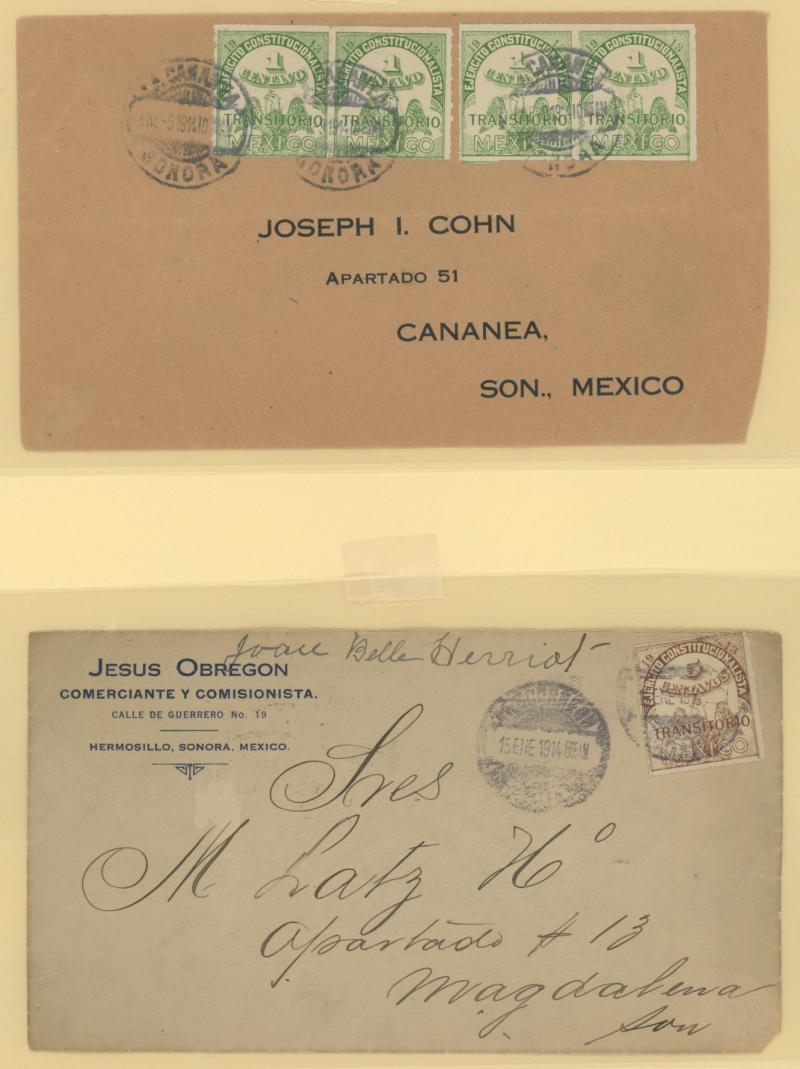 1913 1913
EJERCITO CONSTITUCIONALISTA EJERCITO CONSTITUCIONALISTA EJERCITO CONSTITUCIONALISTA EJERCITO CONSTITUCIONALISTA
1 1 1 1
CENTAVO CENTAVO CENTAVO CENTAVO
TRANSITORIO TRANSITORIO TRANSITORIO TRANSITORIO
MEXICO MEXICO MEXICO MEXICO
LA CANANEA
ENE -9 1914 10
SONORA
SONORA
JOSEPH I. COHN
APARTADO 51
CANANEA,
SON., MEXICO
Joan Belle Herriot
JESUS OBREGON
COMERCIANTE Y COMISIONISTA.
CALLE DE GUERRERO No. 19
HERMOSILLO, SONORA, MEXICO.
1913
EJERCITO CONSTITUCIONALISTA
5
CENTAVOS
TRANSITORIO
MEXICO
15 ENE 1914
Sres
M. Latz Hº
Apartado # 13
Magdalena
Son